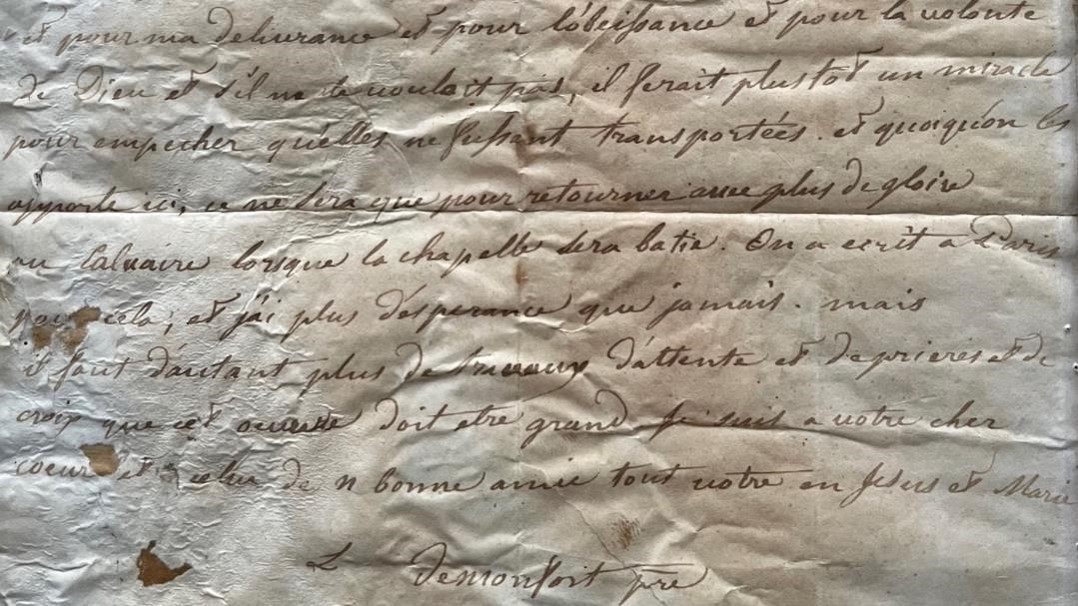 et pour ma delivrance et pour l'obeissance et pour la volonte
de Dieu et s'il ne le vouloit pas, il ferait plustot un miracle
pour empecher qu'elles ne fussent transportées. et quoiqu'on les
apporte ici, ce ne sera que pour retourner avec plus de gloire
au Calvaire lorsque la chapelle sera batie. On a ecrit a Paris
pour cela, et j'ai plus d'esperance que jamais. mais
il faut d'autant plus de travaux d'attente et de prieres et de
croix que cet oeuvre doit etre grand. je suis a votre cher
coeur et a celui de n bonne amie tout votre en Jesus et Marie
L demonfort pre